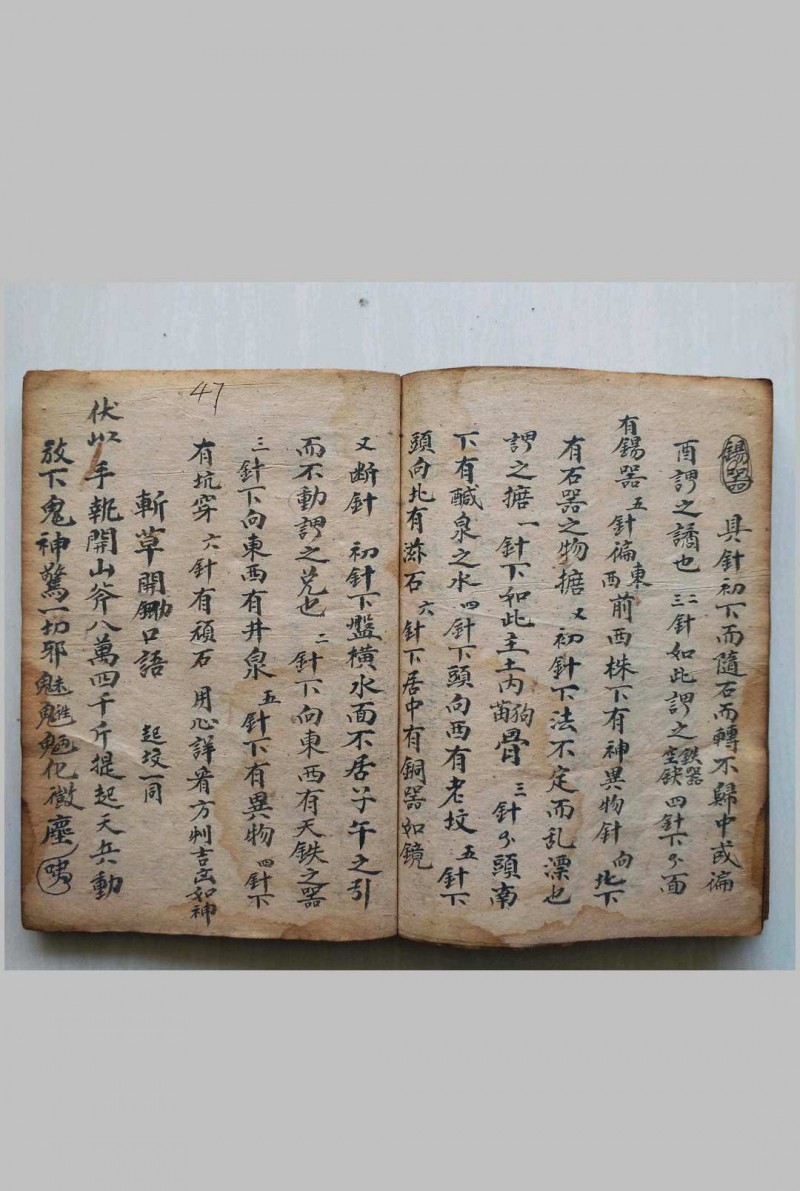 錫器　具針初下而隨石而轉不歸中或偏
酉謂之譎也　二三針如此謂之鉄器空缺　四針下分面
有錫器　五針偏東西前西株下有神異物針　向北下
有石器之物搪　又初針下法不定而乱漂也
謂之搪　一針下如此主土內狗苗骨　三針分頭南
下有鹹泉之水　四針下頭向西有老坟　五針下
頭向北有滋石　六針下居中有銅器如鏡
又断針　初針下盤橫水面不居子午之引
而不動謂之兑也　二針下向東西有天鉄之器
三針下向東西有井泉　五針下有異物　四針下
有坑穿　六針有頑石　用心詳看方判吉凶如神
47
斬草開鋤口語　起坟一同
伏以手執開山斧八萬四千斤提起天兵動
放下鬼神驚一切邪魅魑魎化微塵